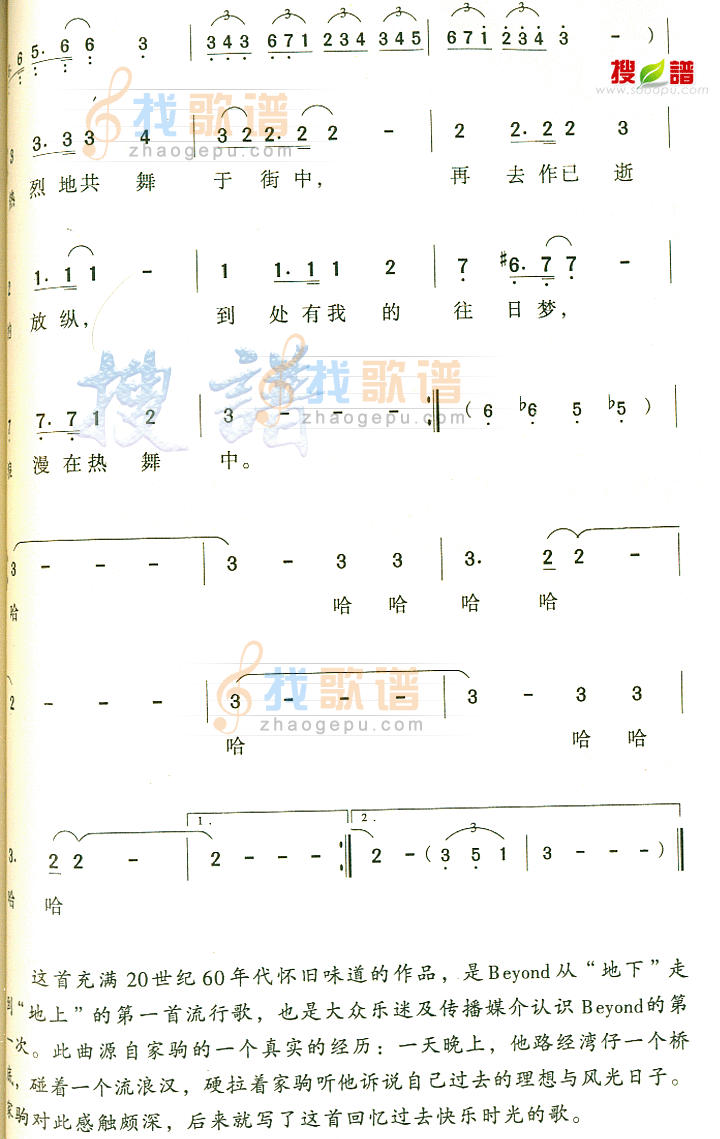 6 5. 6 6 3 | 3 4 3 6 7 1 2 3 4 3 4 5 | 6 7 1 2 3 4 3 - ) |
搜 谱
www.sooopu.com
找歌谱
zhaogepu.com
3. 3 3 4 | 3 2 2. 2 2 - | 2 2. 2 2 3 |
烈 地 共 舞 于 街 中, 再 去 作 已 逝
1. 1 1 - | 1 1. 1 1 2 | 7 #6. 7 7 - |
放 纵, 到 处 有 我 的 往 日 梦,
搜 谱
找歌谱
zhaogepu.com
7. 7 1 2 | 3 - - - :| ( 6 b6 5 b5 ) |
漫 在 热 舞 中。
3 - - - | 3 - 3 3 | 3. 2 2 - |
哈 哈 哈 哈 哈
找歌谱
zhaogepu.com
2 - - - | 3 - - - | 3 - 3 3 |
哈 哈 哈
1. 2.
3. 2 2 - | 2 - - - :| 2 - ( 3 5 1 3 - - - ) ||
哈 哈
这首充满20世纪60年代怀旧味道的作品，是Beyond从“地下”走
到“地上”的第一首流行歌，也是大众乐迷及传播媒介认识Beyond的第
一次。此曲源自家驹的一个真实的经历：一天晚上，他路经湾仔一个桥
底，碰着一个流浪汉，硬拉着家驹听他诉说自己过去的理想与风光日子。
家驹对此感触颇深，后来就写了这首回忆过去快乐时光的歌。